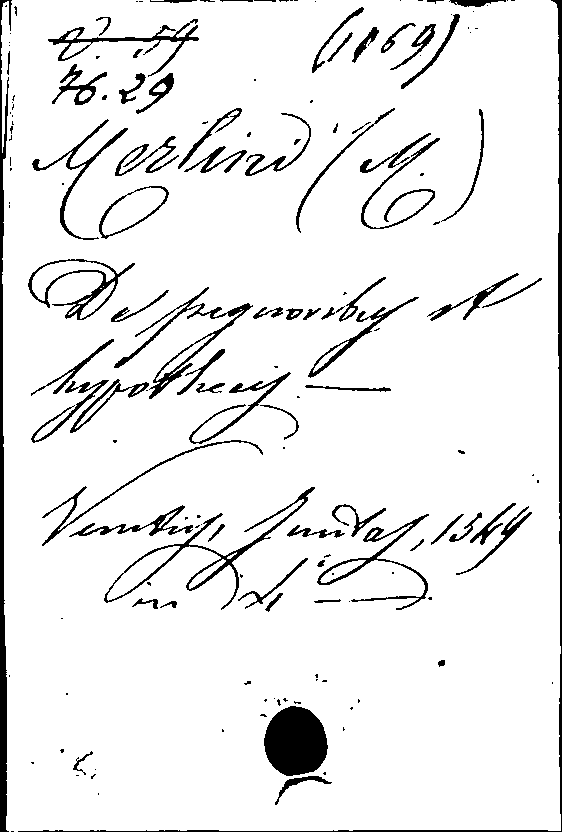 V. 59 (1869)
76.29
Merlini (M.)
De pignoribus et
hypothecis —
Venetiis, Juntas, 1549
in